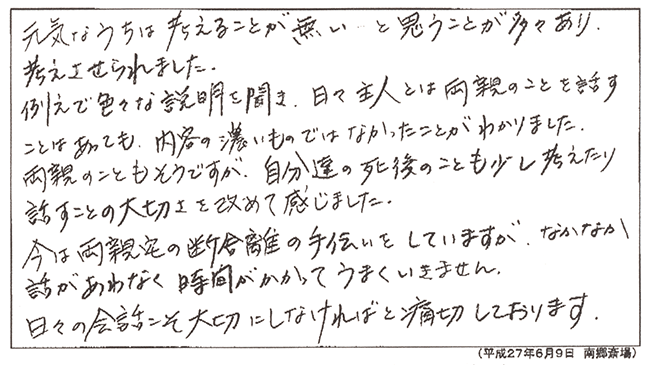 元気なうちは考えることが無い…と思うことが多々あり、
考えさせられました。
例えで色々な説明を聞き、日々主人とは両親のことを話す
ことはあっても、内容の濃いものではなかったことがわかりました。
両親のこともそうですが、自分達の死後のことも少し考えたり
話すことの大切さを改めて感じました。
今は両親宅の断舎離の手伝いをしていますが、なかなか
話があわなく時間がかかってうまくいきません。
日々の会話こそ大切にしなければと痛切しております。
(平成27年6月9日 南郷斎場)